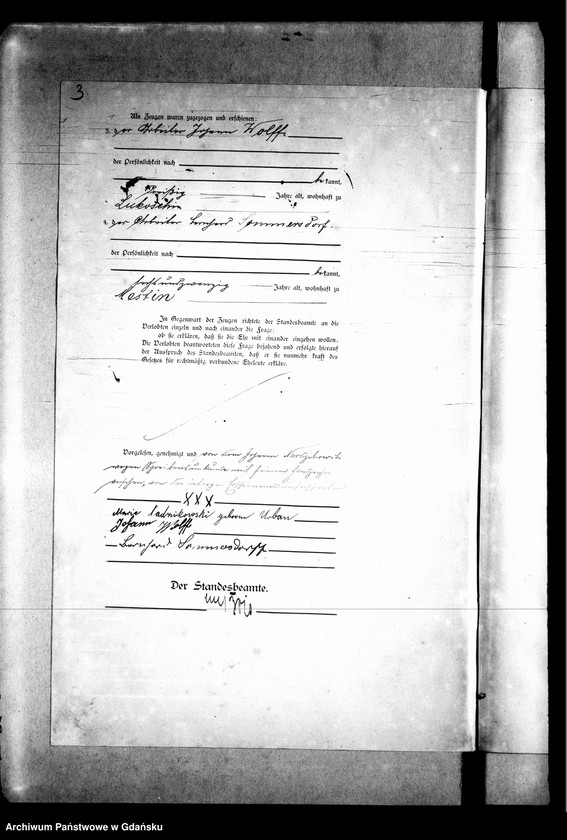 3
Als Zeugen waren zugezogen und erschienen:
3. der Arbeiter Johann Wolff
der Persönlichkeit nach
bekannt,
dreißig Jahre alt, wohnhaft zu
Lukoschin
4. der Arbeiter Bernhard Sommersdorf
der Persönlichkeit nach
bekannt,
sechsundzwanzig Jahre alt, wohnhaft zu
Mestin
In Gegenwart der Zeugen richtete der Standesbeamte an die
Verlobten einzeln und nach einander die Frage:
ob sie erklären, daß sie die Ehe mit einander eingehen wollen.
Die Verlobten beantworteten diese Frage bejahend und erfolgte hierauf
der Ausspruch des Standesbeamten, daß er sie nunmehr kraft des
Gesetzes für rechtmäßig verbundene Eheleute erkläre.
Vorgelesen, genehmigt und von dem Johann
wegen Schreibensunkunde mit seinem Handzeichen
versehen, von den übrigen Erschienenen unterschrieben
XXX
Marie Sadnikowski geborene Urban
Johann Wolff
Bernhard Sommersdorff
Der Standesbeamte.
Archiwum Państwowe w Gdańsku